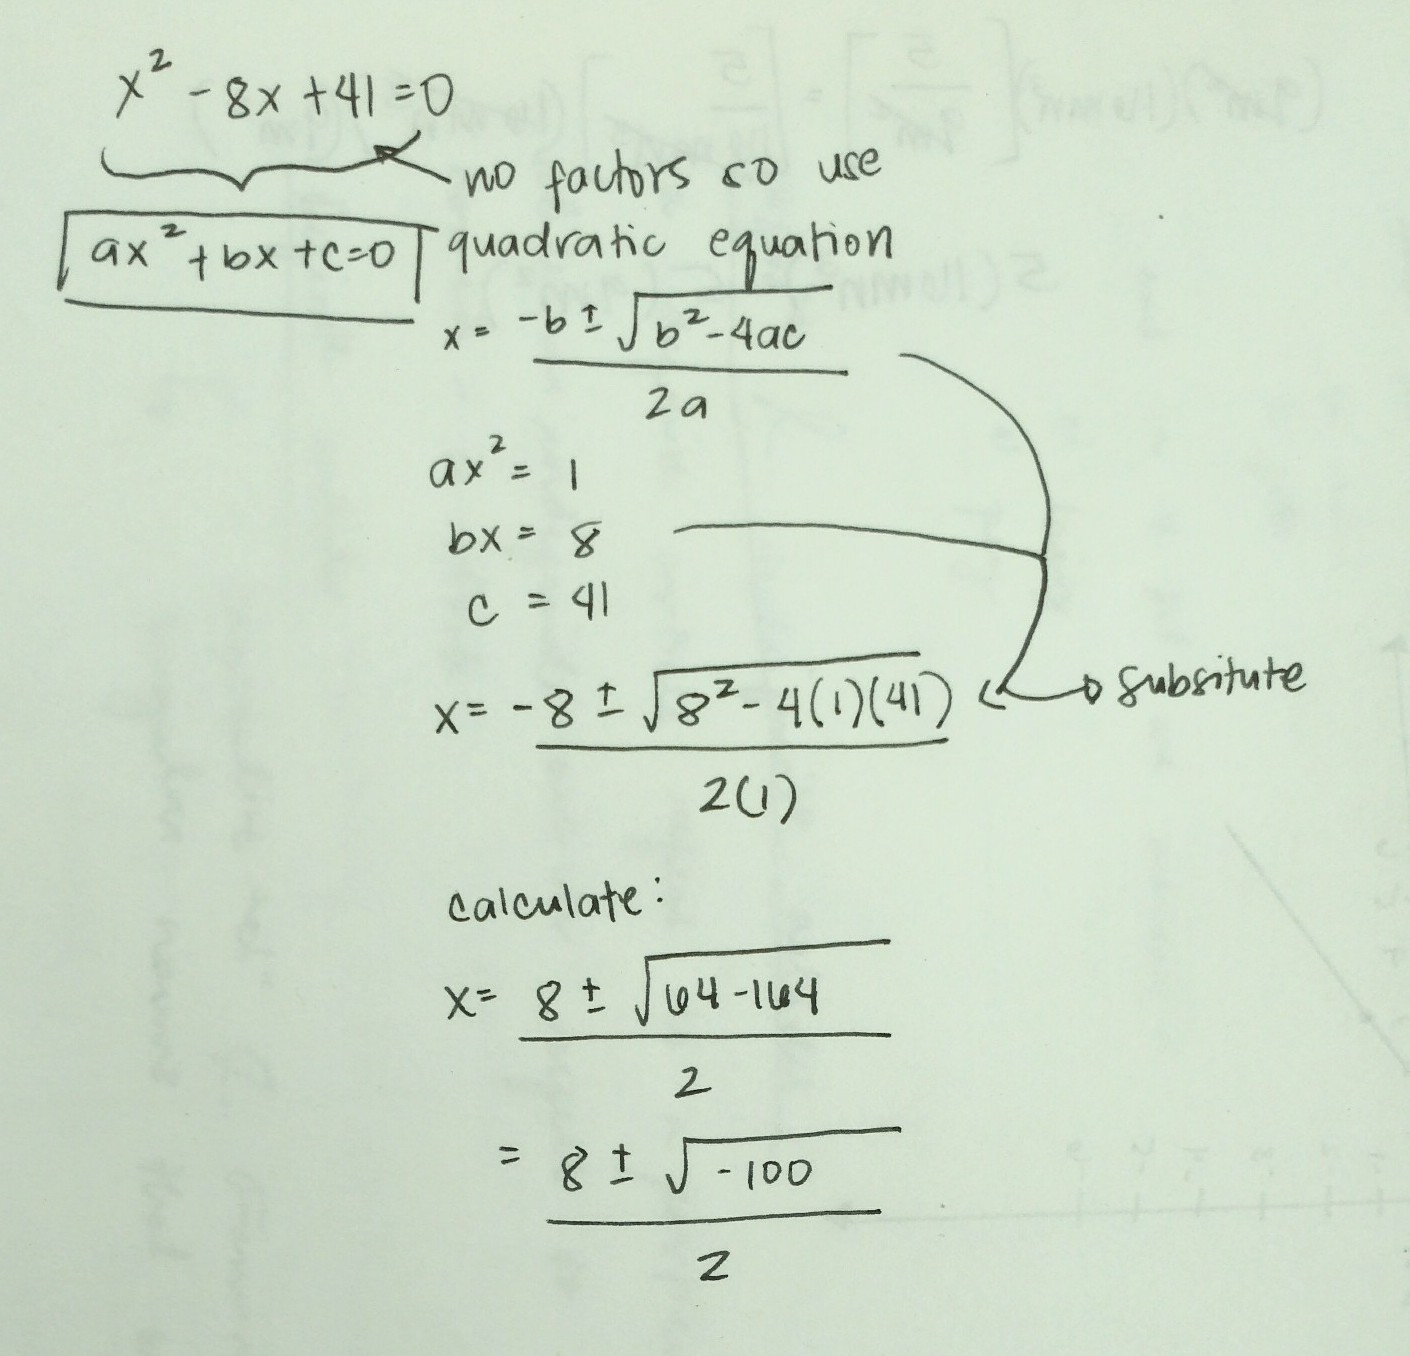 x² - 8x + 41 = 0
no factors so use
ax² + bx + c = 0
quadratic equation
x = -b ± √b² - 4ac
2a
ax² = 1
bx = 8
c = 41
x = -8 ± √8² - 4(1)(41)
subsitute
2(1)
calculate:
x = 8 ± √64 - 164
2
= 8 ± √-100
2